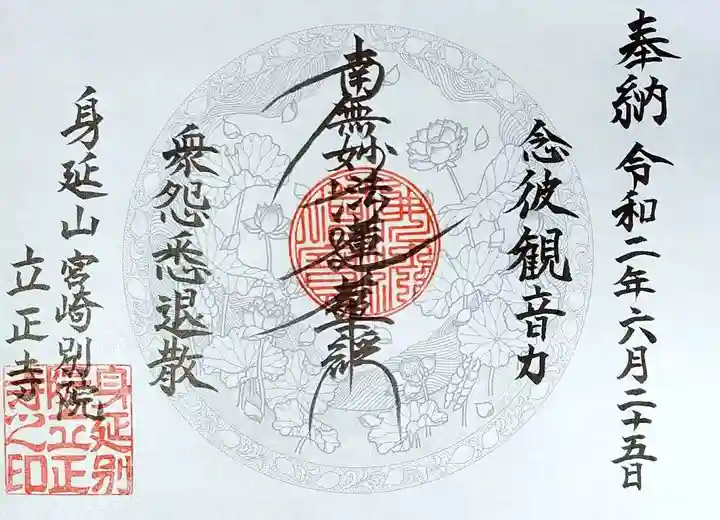 奉納 令和二年六月二十五日
念彼観音力
南無妙法蓮華経
衆怨悉退散
身延山 宮崎別院
立正寺
身延別
院立正
寺之印